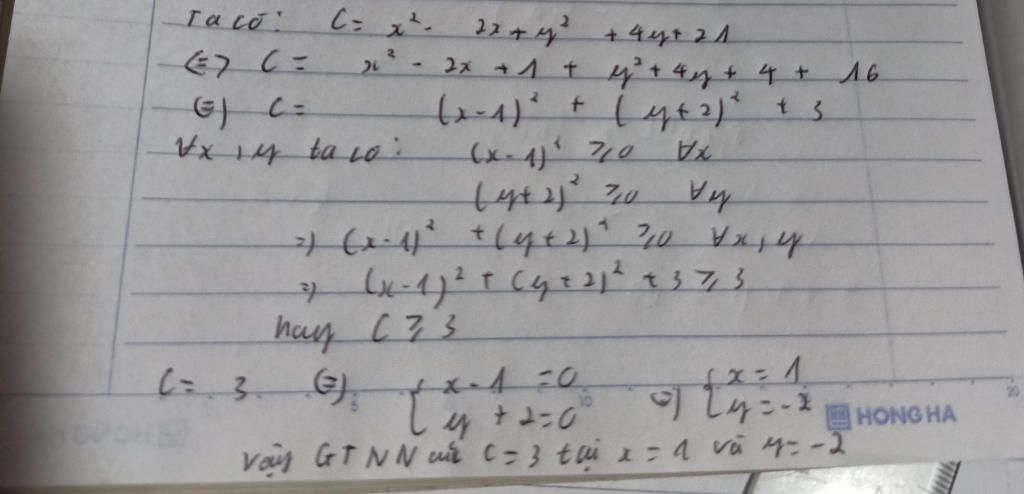 Ta có: C = x² - 2x + y² + 4y + 21
<=> C = x² - 2x + 1 + y² + 4y + 4 + 16
<=> C = (x-1)² + (y+2)² + 3
∀x, y ta có: (x-1)² ≥ 0 ∀x
(y+2)² ≥ 0 ∀y
=> (x-1)² + (y+2)² ≥ 0 ∀x, y
=> (x-1)² + (y+2)² + 3 ≥ 3
hay C ≥ 3
C = 3 <=> { x - 1 = 0 <=> { x = 1
y + 2 = 0 y = -2
5 10 20
HONG HA
Vậy GTNN của C = 3 tại x = 1 và y = -2